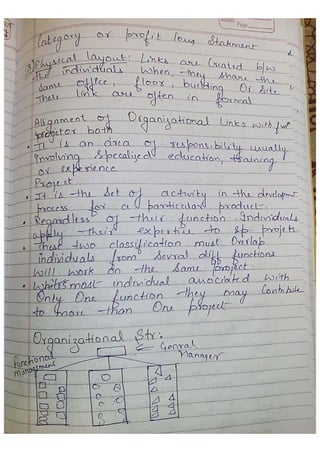 Category or profit loss Statement
③ Physical layout: Links are created b/w
the individuals when they share the
same office, floor, building or site
These link are often in formal
Allignment of Organizational Links with fun
projetor both
• It is an area of responsibility usually
involving specalized education, training
or experience
Project
• It is the set of activity in the development
process for a particular product.
• Regardless of their function Individuals
apply their expertise to sp. projets
• These two classification must Overlap
individuals from sevral diff functions
will work on the same project
• Whilst most individual associated with
Only One function they may Contibute
to more than One project
Organizational Str:
Genral
Manager
Functional
management